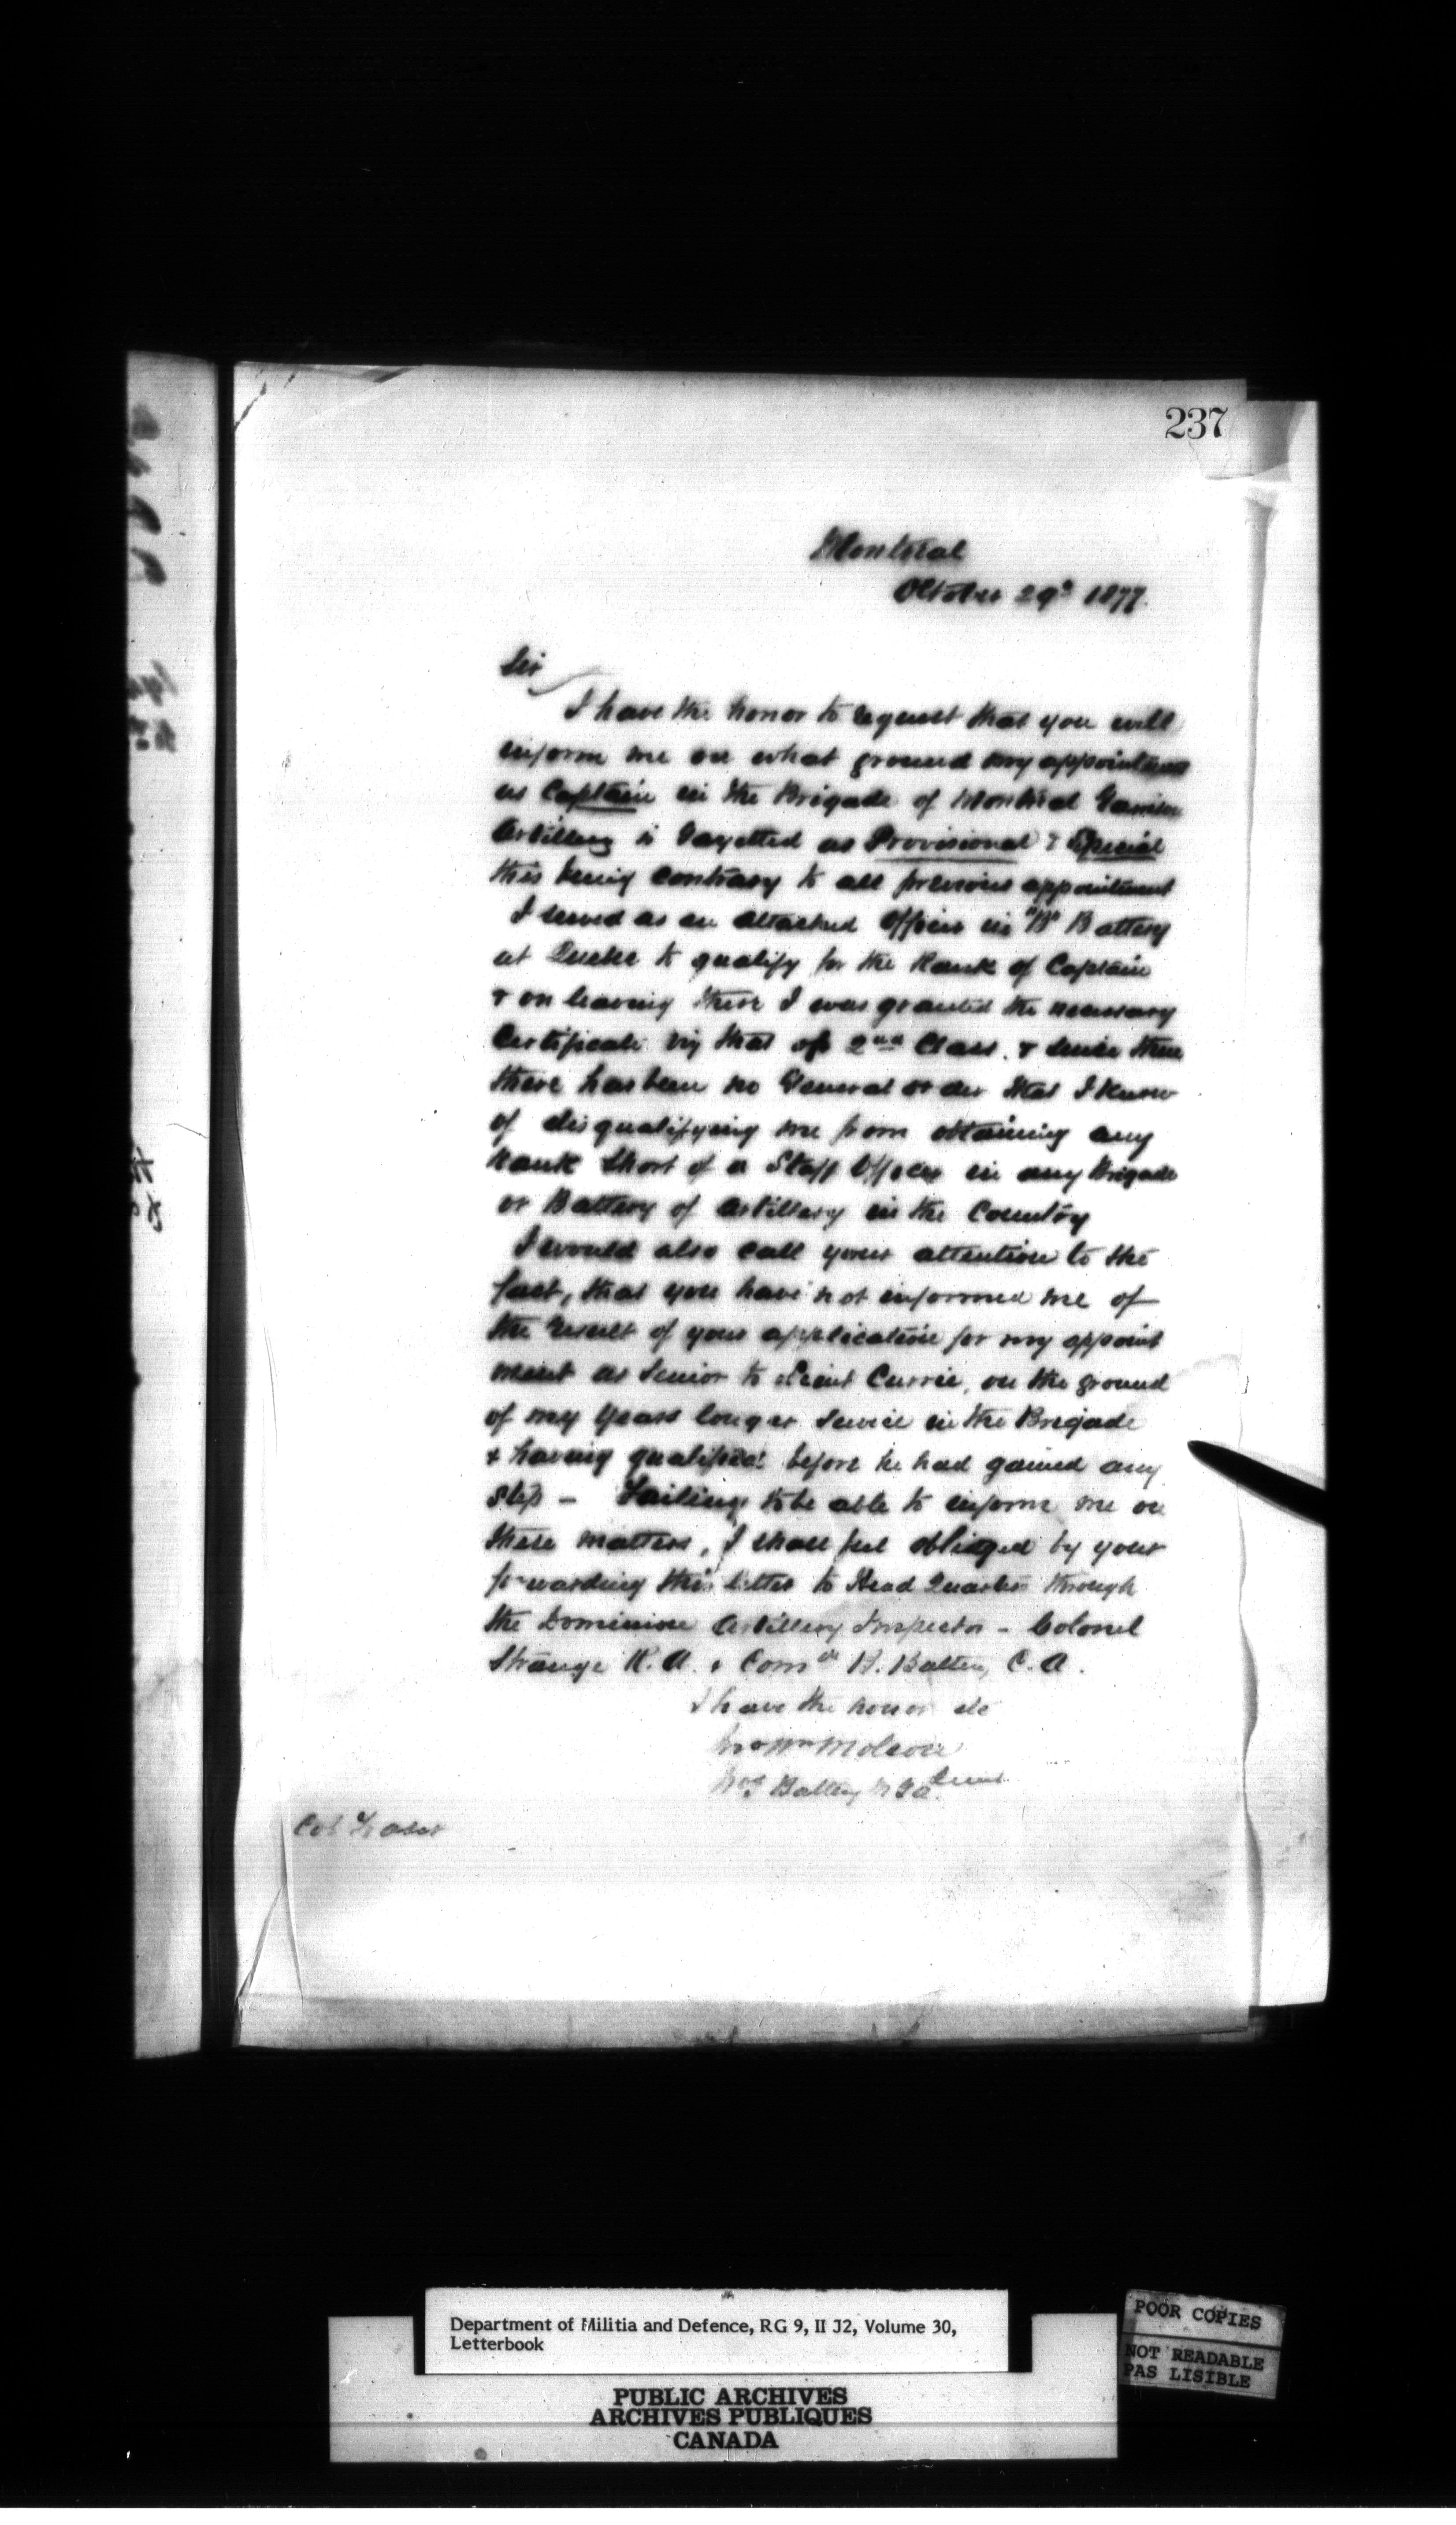 237
Montreal
October 29th 1877.
Sir
I have the honor to request that you will
inform me on what ground my appointment
as Captain in the Brigade of Montreal Garrison
Artillery is Gazetted as Provisional & Special
this being contrary to all previous appointment
I served as an attached officer in "B" Battery
at Quebec to qualify for the Rank of Captain
& on leaving there I was granted the necessary
Certificate viz that of 2nd Class. & since then
there has been no General order that I know
of disqualifying me from obtaining any
Rank Short of a Staff Officer in any Brigade
or Battery of Artillery in the Country
I would also call your attention to the
fact, that you have not informed me of
the result of your application for my appoint
ment as Senior to Lieut Currie, on the ground
of my years longer service in the Brigade
& having qualified before he had gained any
step - Failing to be able to inform me on
these matters, I shall feel obliged by your
forwarding this letter to Head Quarters through
the Dominion Artillery Inspector - Colonel
Strange R.A. & Comdt B. Battery C.A.
I have the honor etc
Molson
Lieut.
Battery M G A.
Col Fraser
Department of Militia and Defence, RG 9, II J2, Volume 30,
Letterbook
PUBLIC ARCHIVES
ARCHIVES PUBLIQUES
CANADA
POOR COPIES
NOT READABLE
PAS LISIBLE